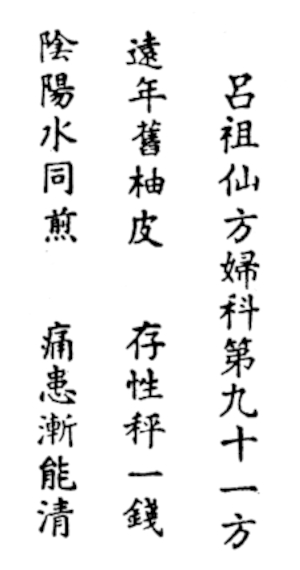 呂祖仙方婦科第九十一方
遠年舊柚皮　存性秤一錢
陰陽水同煎　痛患漸能清